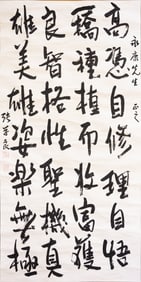 永康先生 正之
高憑自修理自悟
矯種植而收富獲
良智格性聖機真
雄美雄姿樂無極
張